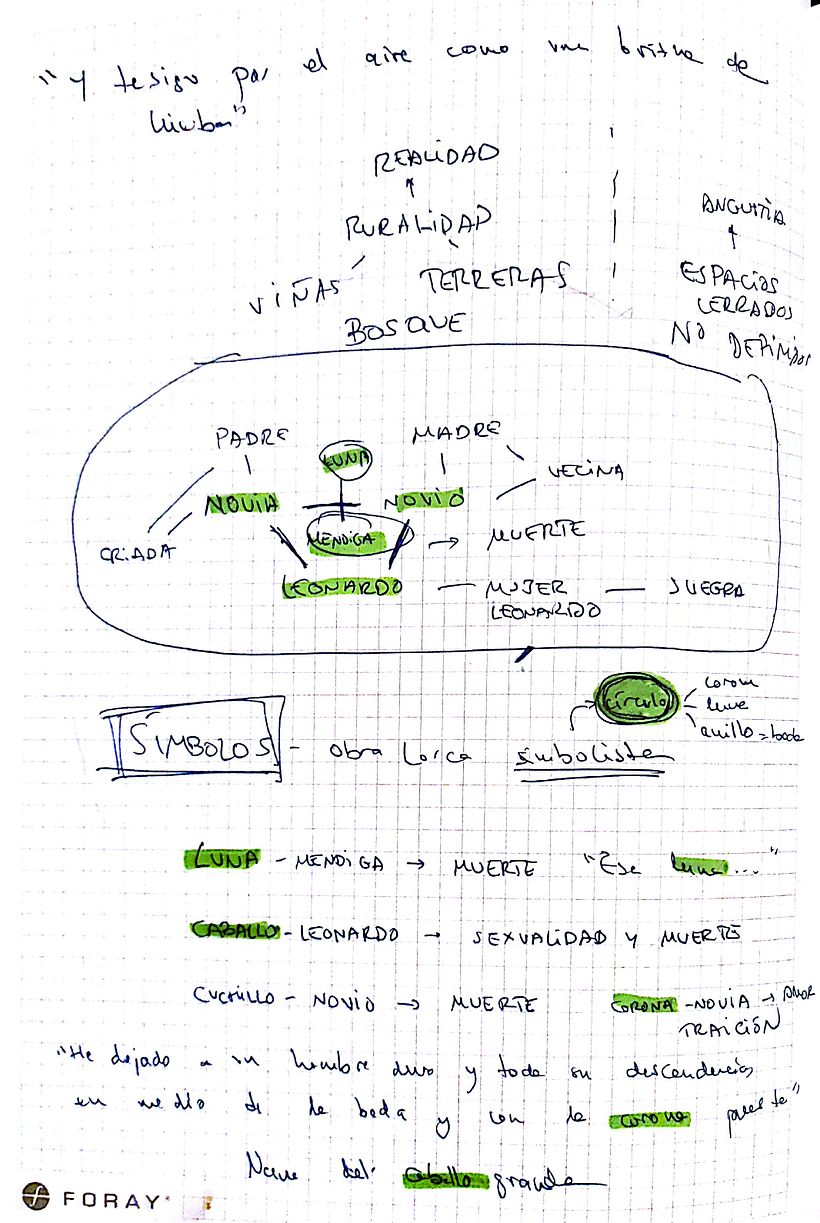 "Y te sigo por el aire como una brizna de
hierba"
REALIDAD
RURALIDAD
ANGUSTIA
VIÑAS
TERRERAS
ESPACIOS
CERRADOS
NO DEFINIDOS
BOSQUE
PADRE
LUNA
MADRE
VECINA
NOVIA
NOVIO
CRIADA
MENDIGA → MUERTE
LEONARDO — MUJER — SUEGRA
LEONARDO
SÍMBOLOS - obra Lorca simbolista
círculo
corona
luna
anillo = boda
LUNA - MENDIGA → MUERTE "Esa luna..."
CABALLO - LEONARDO → SEXUALIDAD Y MUERTE
CUCHILLO - NOVIO → MUERTE CORONA - NOVIA → AMOR
TRAICIÓN
"He dejado a un hombre duro y toda su descendencia
en medio de la boda y con la corona puesta"
Nana del caballo grande
FORAY